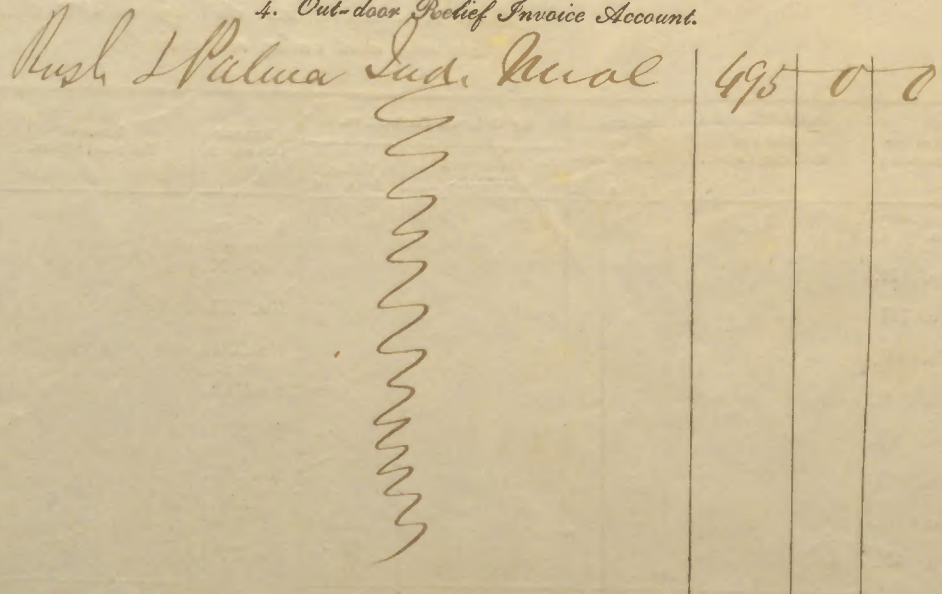 4. Out-door Relief Invoice Account.
Rush & Palmer Ind. Meal 495 0 0